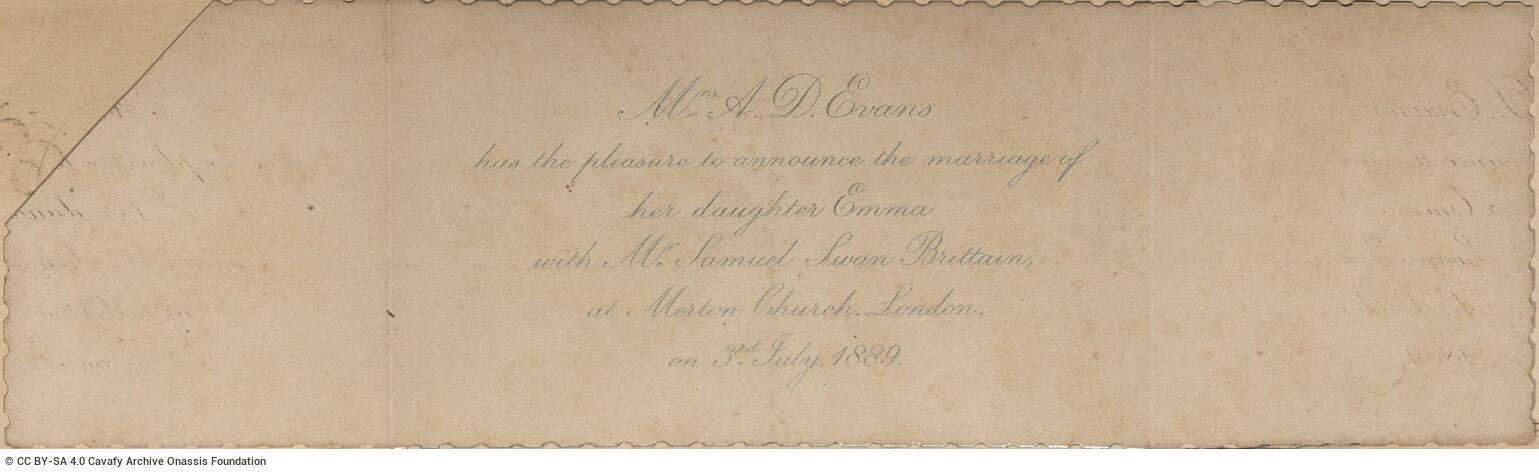 Mrs. A. D. Evans
has the pleasure to announce the marriage of
her daughter Emma
with Mr. Samuel Swan Brittain,
at Merton Church, London,
on 3rd. July, 1889.
© CC BY-SA 4.0 Cavafy Archive Onassis Foundation